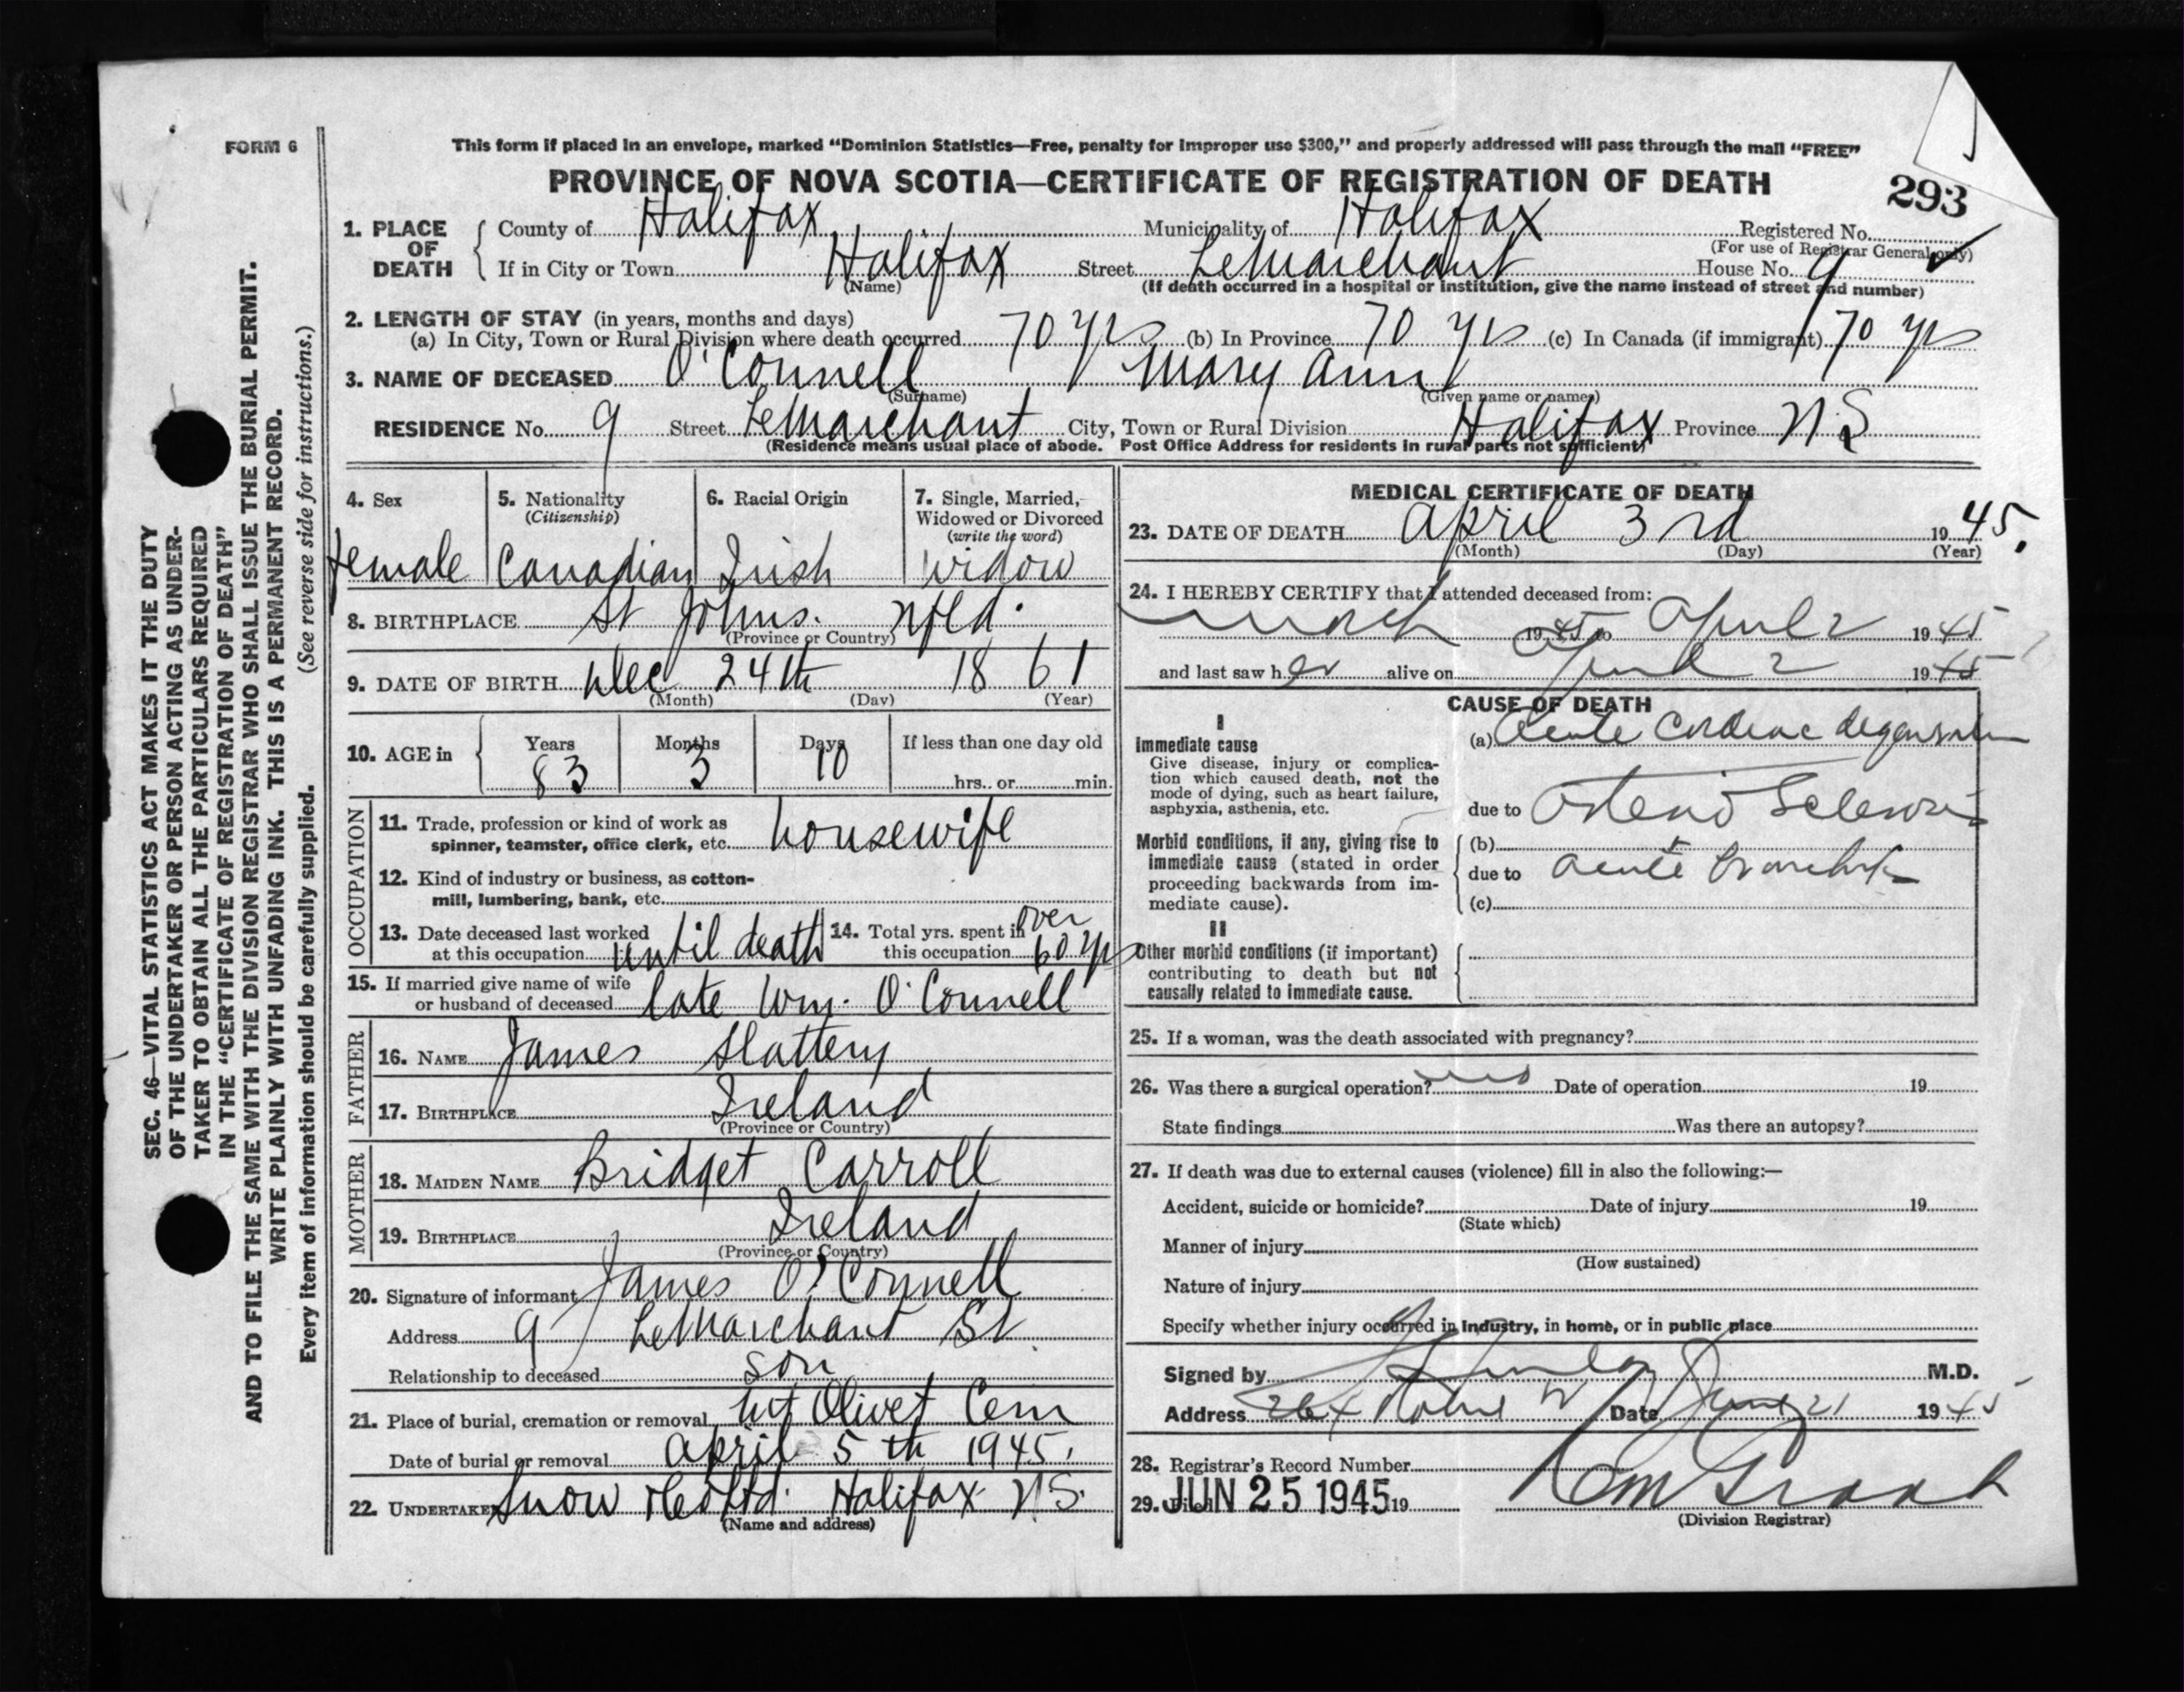 FORM 6
This form if placed in an envelope, marked "Dominion Statistics—Free, penalty for improper use $300," and properly addressed will pass through the mail "FREE"
PROVINCE OF NOVA SCOTIA—CERTIFICATE OF REGISTRATION OF DEATH
293
1. PLACE OF DEATH { County of Halifax Municipality of Halifax Registered No.
(For use of Registrar General only)
If in City or Town Halifax Street LeMarchant House No. 9
(Name) (If death occurred in a hospital or institution, give the name instead of street and number)
2. LENGTH OF STAY (in years, months and days)
(a) In City, Town or Rural Division where death occurred 70 yrs (b) In Province 70 yrs (c) In Canada (if immigrant) 70 yrs
3. NAME OF DECEASED O'Connell Mary Ann
(Surname) (Given name or names)
RESIDENCE No. 9 Street LeMarchant City, Town or Rural Division Halifax Province N.S
(Residence means usual place of abode. Post Office Address for residents in rural parts not sufficient)
4. Sex
female
5. Nationality
(Citizenship)
Canadian
6. Racial Origin
Irish
7. Single, Married, Widowed or Divorced
(write the word)
widow
8. BIRTHPLACE St Johns. Nfld.
(Province or Country)
9. DATE OF BIRTH Dec 24th 1861
(Month) (Day) (Year)
10. AGE in { Years Months Days If less than one day old
83 3 10 hrs. or min.
OCCUPATION
11. Trade, profession or kind of work as
spinner, teamster, office clerk, etc. housewife
12. Kind of industry or business, as cotton-
mill, lumbering, bank, etc.
13. Date deceased last worked
at this occupation until death
14. Total yrs. spent in over
this occupation 60 yrs
15. If married give name of wife
or husband of deceased late Wm. O'Connell
FATHER
16. NAME James Slattery
17. BIRTHPLACE Ireland
(Province or Country)
MOTHER
18. MAIDEN NAME Bridget Carroll
19. BIRTHPLACE Ireland
(Province or Country)
20. Signature of informant James O'Connell
Address 9 LeMarchant St
Relationship to deceased son
21. Place of burial, cremation or removal Mt Olivet Cem
Date of burial or removal April 5th 1945.
22. UNDERTAKER Snow & Co Ltd. Halifax N.S.
(Name and address)
MEDICAL CERTIFICATE OF DEATH
23. DATE OF DEATH April 3rd 1945.
(Month) (Day) (Year)
24. I HEREBY CERTIFY that I attended deceased from:
March 1945 to April 2 1945
and last saw her alive on April 2 1945
CAUSE OF DEATH
I
Immediate cause
Give disease, injury or complica-
tion which caused death, not the
mode of dying, such as heart failure,
asphyxia, asthenia, etc.
(a) Acute Cardiac degeneration
due to Arterio Sclerosis
Morbid conditions, if any, giving rise to
immediate cause (stated in order
proceeding backwards from im-
mediate cause).
(b)
due to acute Bronchitis
(c)
II
Other morbid conditions (if important)
contributing to death but not
causally related to immediate cause.
25. If a woman, was the death associated with pregnancy?
26. Was there a surgical operation? no Date of operation 19
State findings Was there an autopsy?
27. If death was due to external causes (violence) fill in also the following:—
Accident, suicide or homicide? Date of injury 19
(State which)
Manner of injury
(How sustained)
Nature of injury
Specify whether injury occurred in industry, in home, or in public place
Signed by M.D.
Address Date June 21 1945
28. Registrar's Record Number
29. Filed JUN 25 1945 19
(Division Registrar)
SEC. 46—VITAL STATISTICS ACT MAKES IT THE DUTY
OF THE UNDERTAKER OR PERSON ACTING AS UNDER-
TAKER TO OBTAIN ALL THE PARTICULARS REQUIRED
IN THE "CERTIFICATE OF REGISTRATION OF DEATH"
AND TO FILE THE SAME WITH THE DIVISION REGISTRAR WHO SHALL ISSUE THE BURIAL PERMIT.
WRITE PLAINLY WITH UNFADING INK. THIS IS A PERMANENT RECORD.
Every item of information should be carefully supplied. (See reverse side for instructions.)